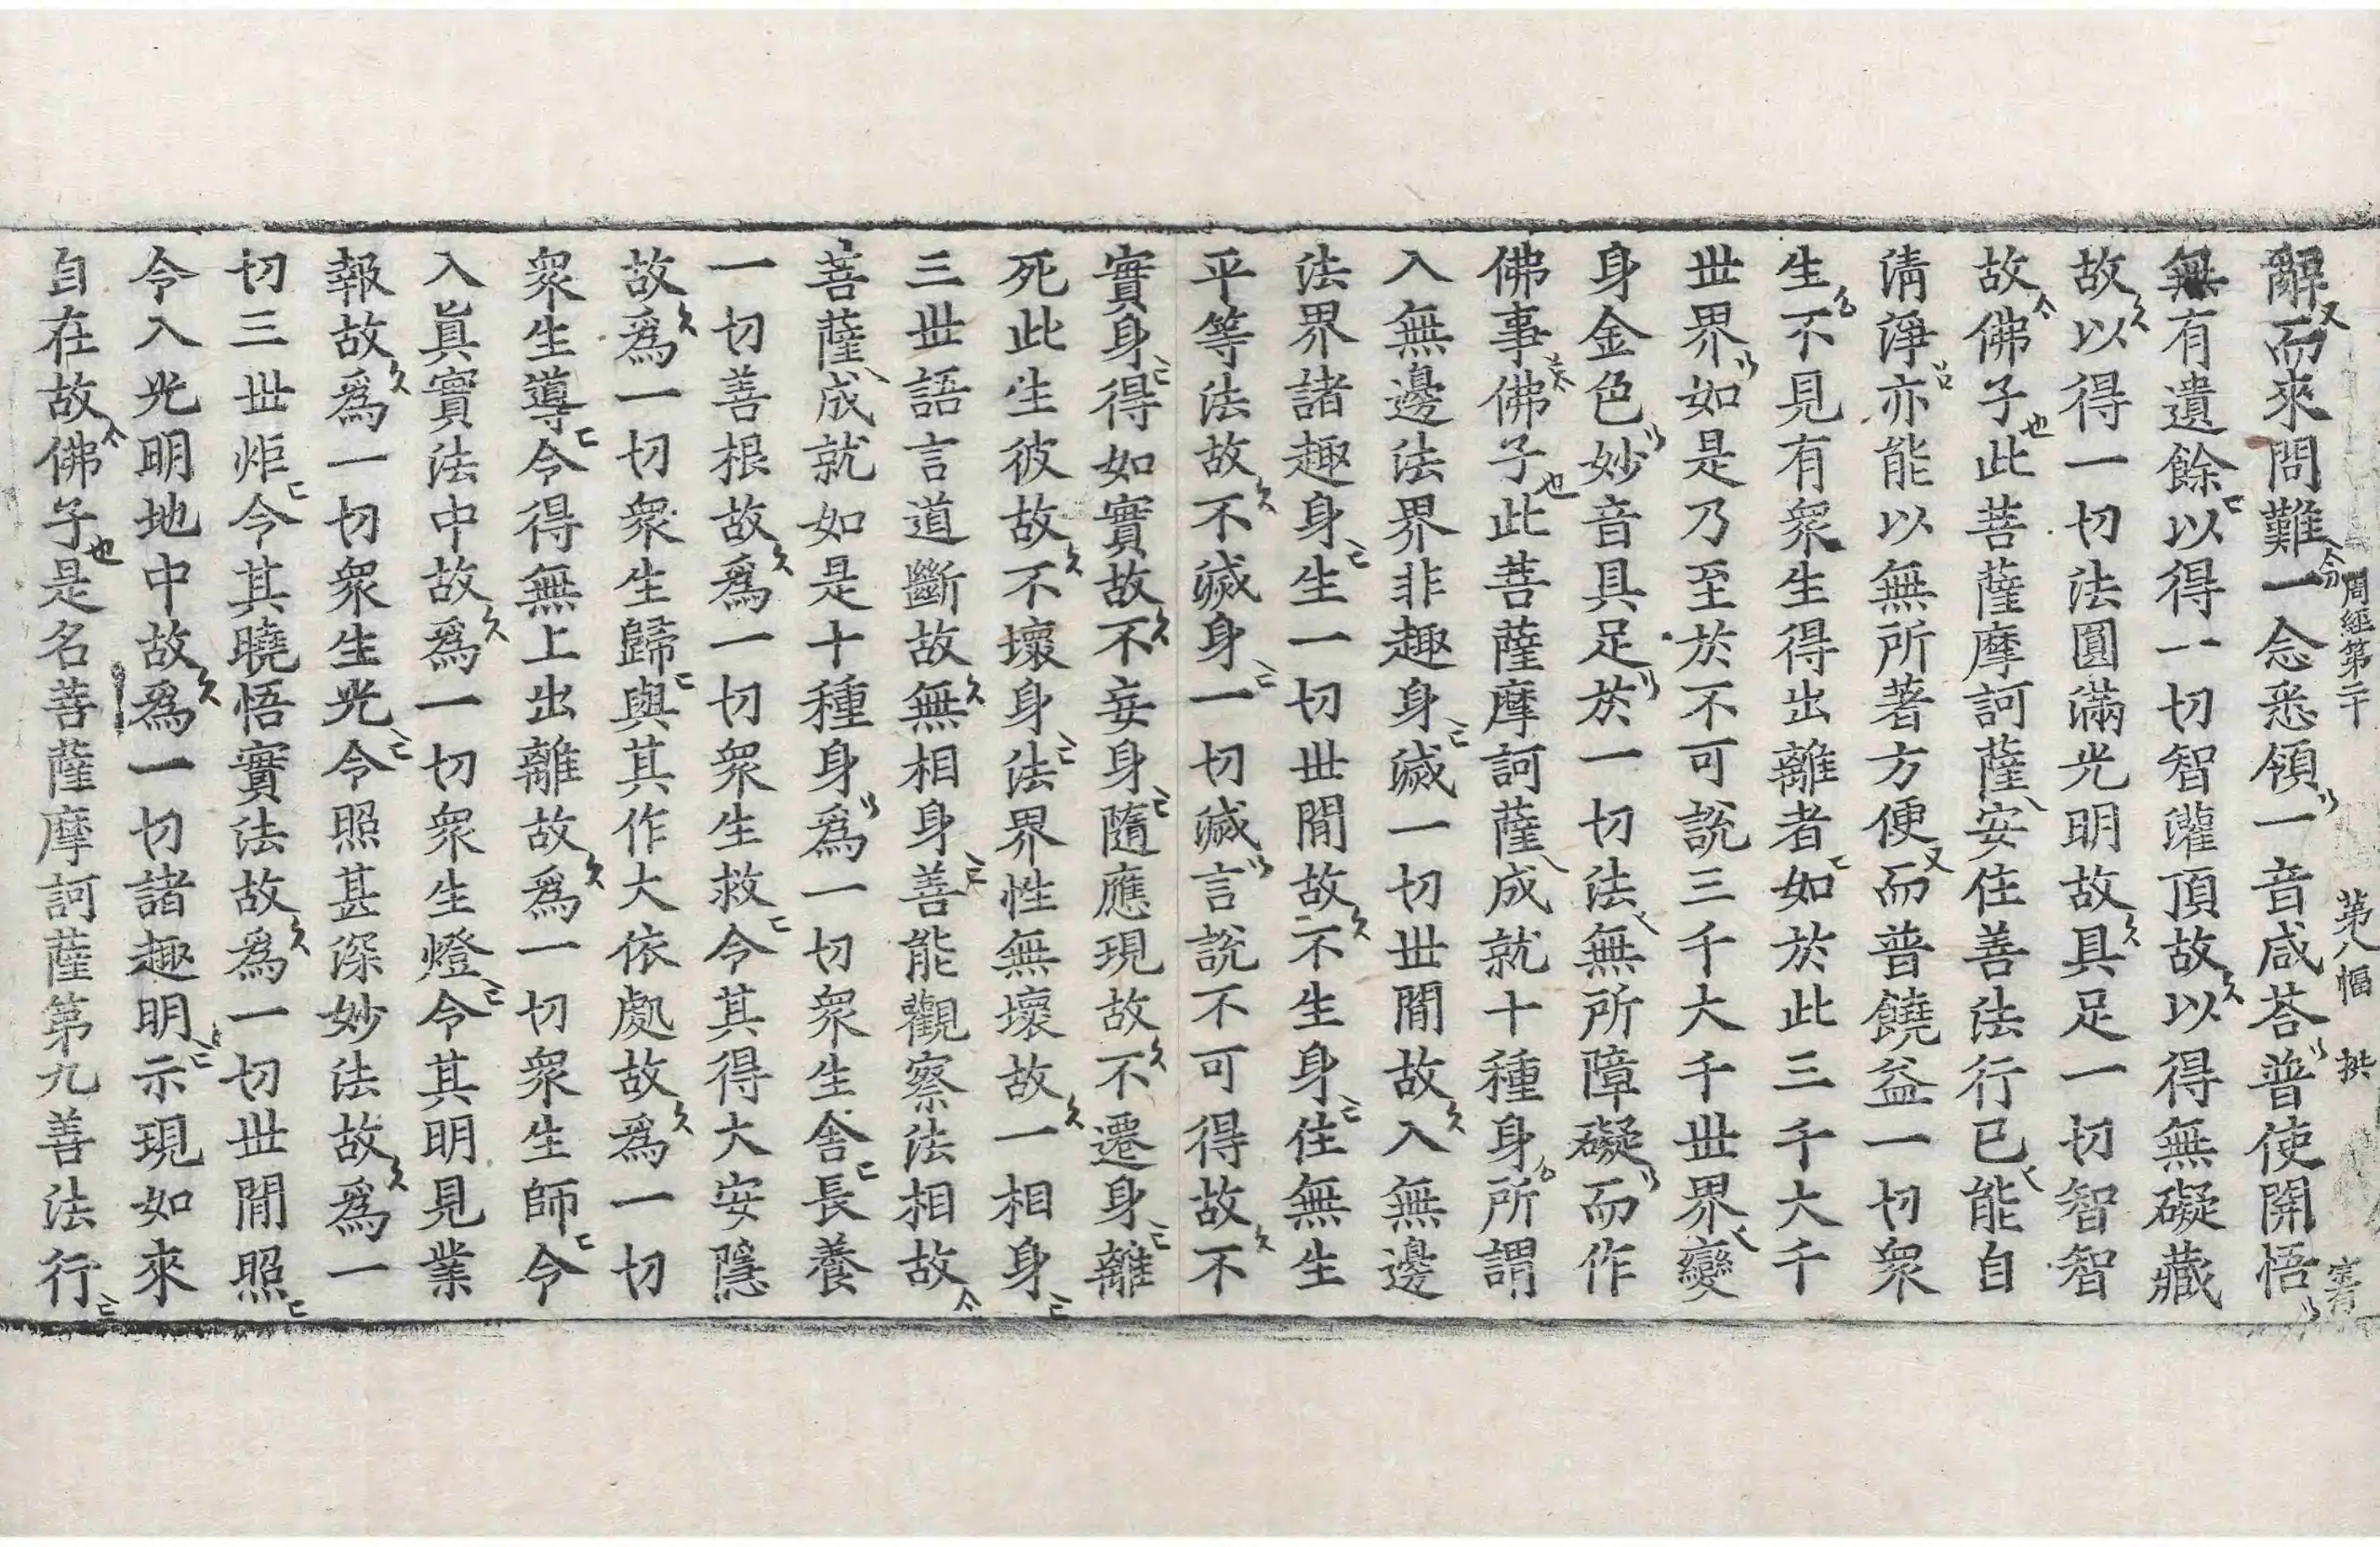 辭而來問難一念悉領一音咸荅普使開悟
周經第二十 第八幅
無有遺餘以得一切智灌頂故以得無礙藏
故以得一切法圓滿光明故具足一切智智
故佛子此菩薩摩訶薩安住善法行已能自
淸淨亦能以無所著方便而普饒益一切衆
生不見有衆生得出離者如於此三千大千
世界如是乃至於不可說三千大千世界變
身金色妙音具足於一切法無所障礙而作
佛事佛子此菩薩摩訶薩成就十種身所謂
入無邊法界非趣身滅一切世間故入無邊
法界諸趣身生一切世間故不生身住無生
平等法故不滅身一切滅言說不可得故不
實身得如實故不妄身隨應現故不遷身離
死此生彼故不壞身法界性無壞故一相身
三世語言道斷故無相身善能觀察法相故
菩薩成就如是十種身爲一切衆生舍長養
一切善根故爲一切衆生救令其得大安隱
故爲一切衆生歸與其作大依處故爲一切
衆生導令得無上出離故爲一切衆生師令
入眞實法中故爲一切衆生燈令其明見業
報故爲一切衆生光令照甚深妙法故爲一
切三世炬令其曉悟實法故爲一切世間照
令入光明地中故爲一切諸趣明示現如來
自在故佛子是名菩薩摩訶薩第九善法行